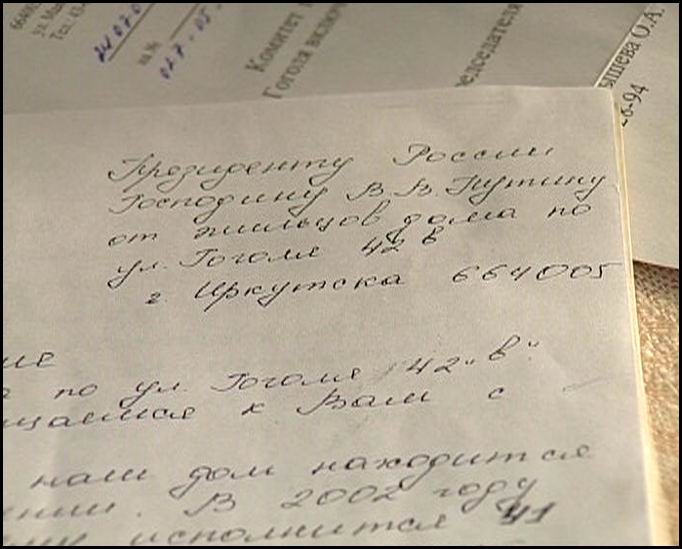 66400
ул. Ма
Тел. 43-
24070
на №
017-05-
Комитет
Гогола включ
редседателя
ышева О.А.
6-94
Президенту России
Господину В.В. Путину
от жильцов дома по
ул. Гоголя 42 в
г. Иркутска 664005
ие
а по ул. Гоголя 42 „в".
щаемся к Вам с
наш дом находится
ении. В 2002 году
исполнится 41